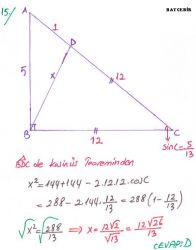 BAYÇEBİR
15./
A
1
D
5
x
12
B
12
C
sinC=5/13
BDC de kosinüs teoreminden
x²=144+144-2.12.12 cosC
=288-2.144.12/13=288(1-12/13)
√x²=√288/13 ⇒ x=12√2/√13=12√26/13
CEVAP:D